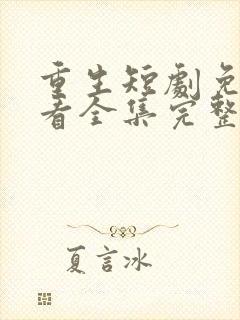 重生短劇免
看全集完整
夏言冰